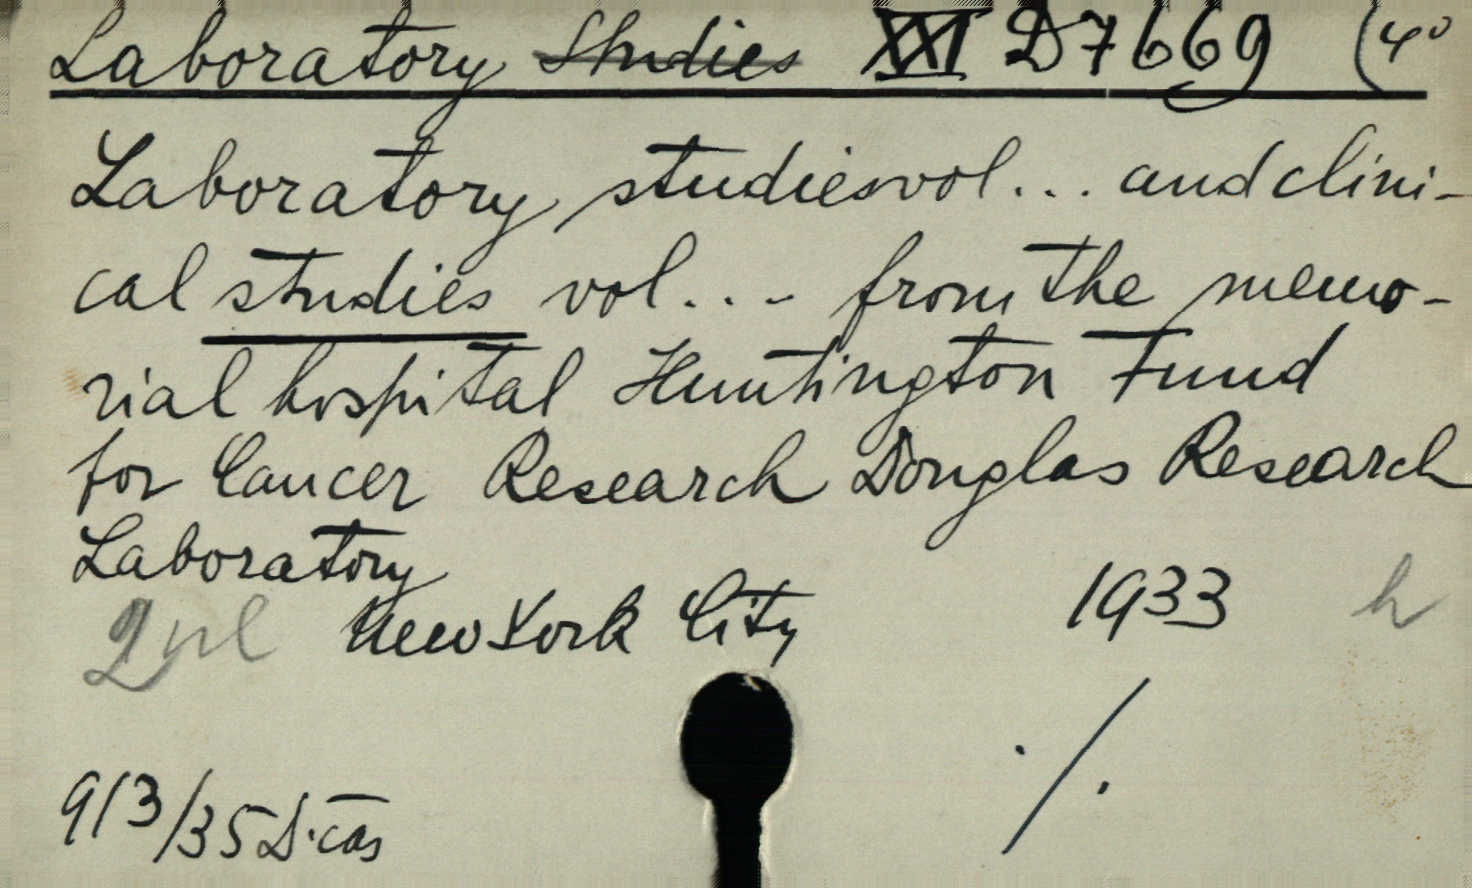 Laboratory Studies XXI D7669 (4°
Laboratory studies vol... and clini-
cal studies vol... from the memo-
rial hospital Huntington Fund
for Cancer Research Douglas Research
Laboratory
New York City 1933 h
./.
913/35